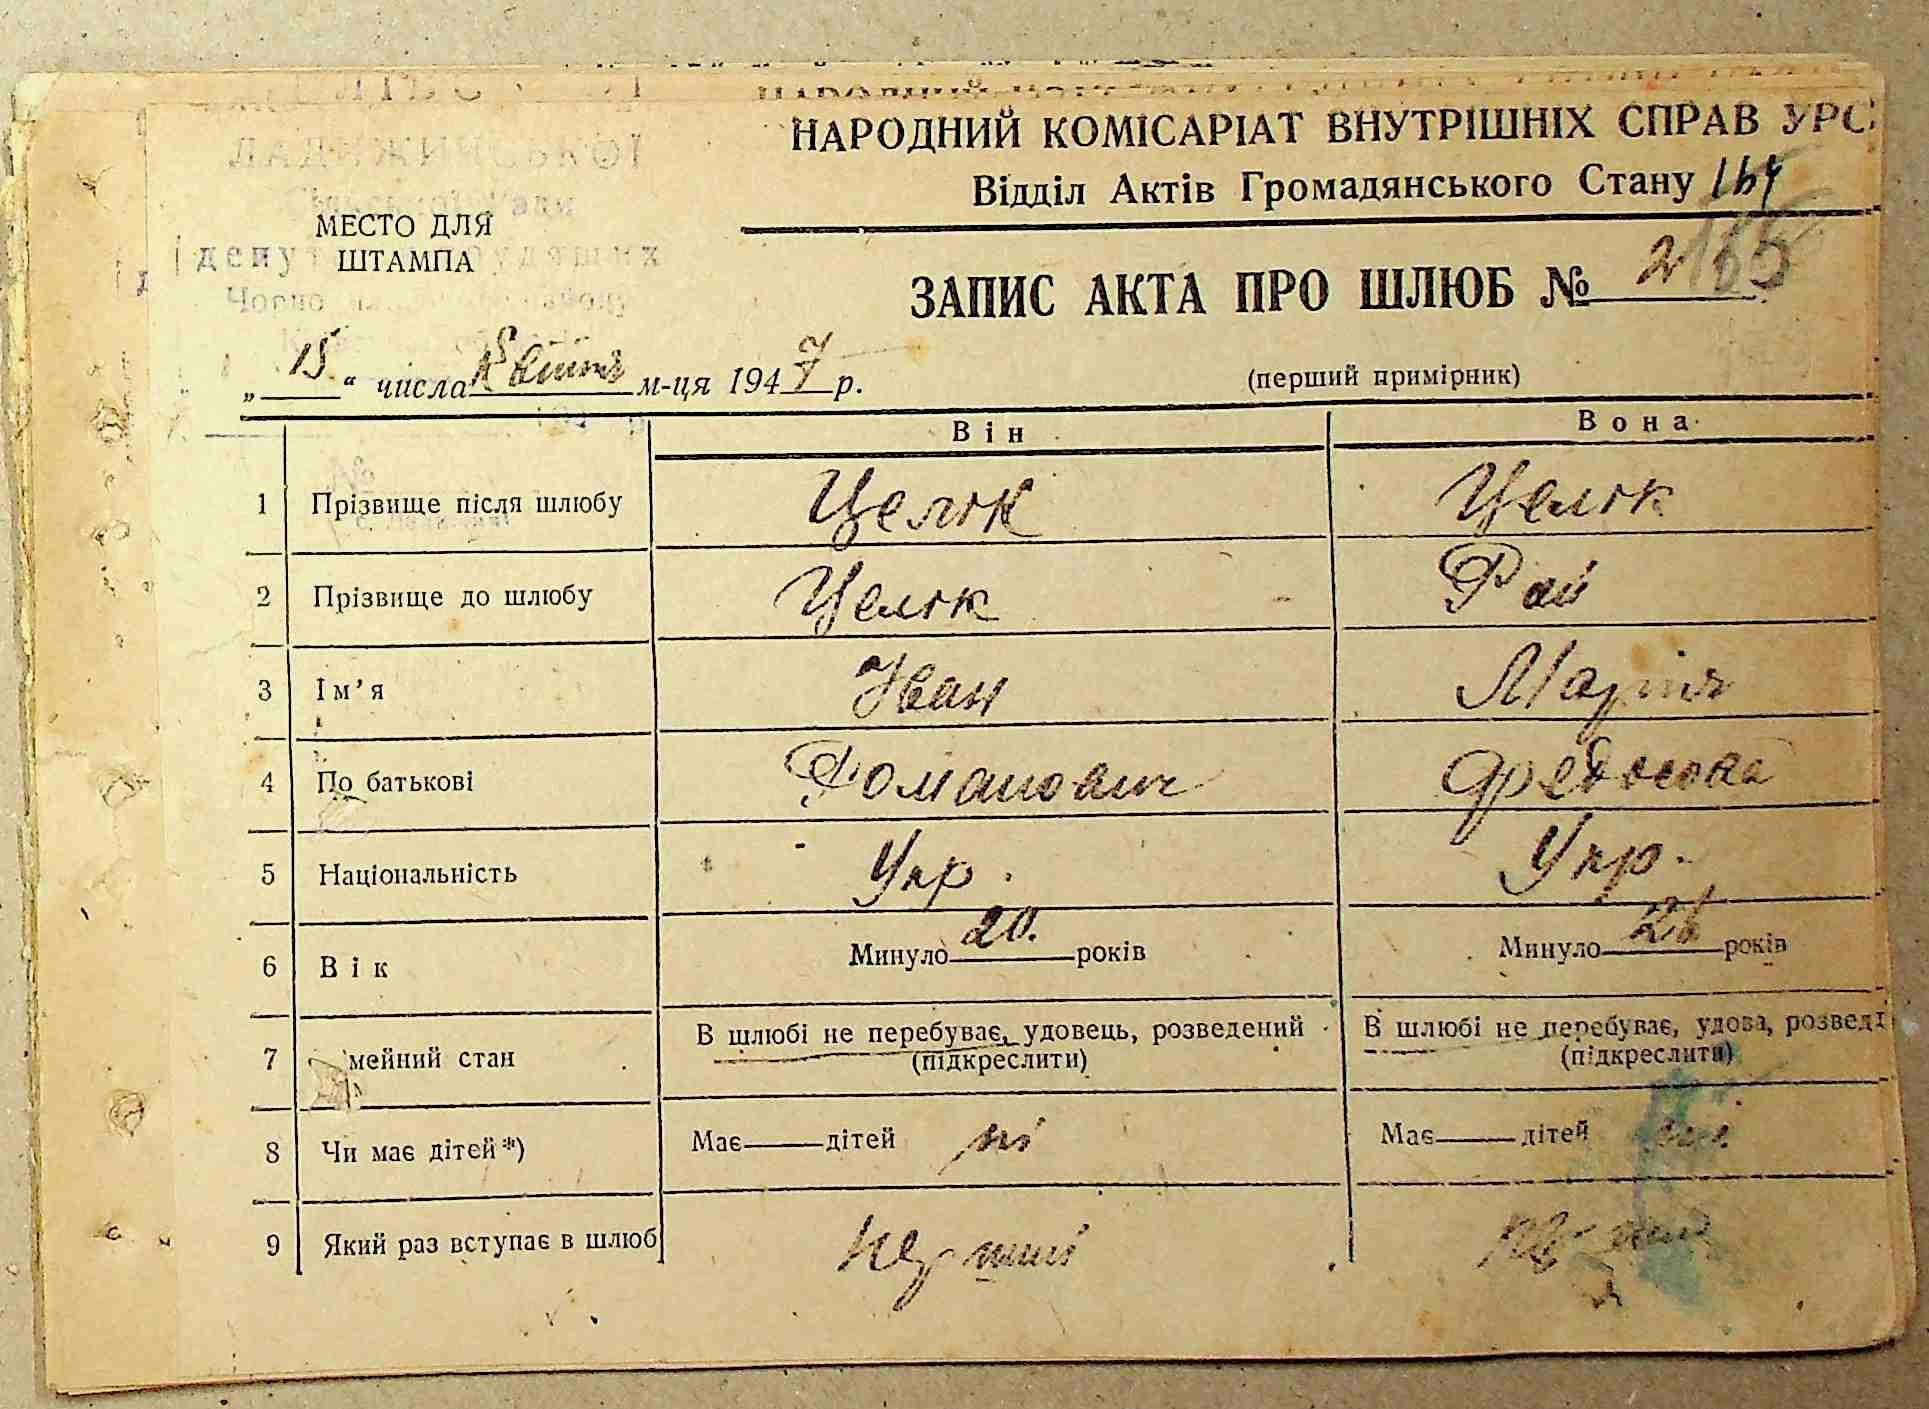 НАРОДНИЙ КОМІСАРІАТ ВНУТРІШНІХ СПРАВ УРС
Відділ Актів Громадянського Стану 164
МЕСТО ДЛЯ
ШТАМПА
ЗАПИС АКТА ПРО ШЛЮБ № 2 165
„ 15 “ числа м-ця 1947 р.
(перший примірник)
Він
Вона
1 Прізвище після шлюбу Целік Целік
2 Прізвище до шлюбу Целік Рай
3 Ім’я Иван Марія
4 По батькові Романович Федосова
5 Національність Укр. Укр.
6 Вік Минуло 20. років Минуло років
7 мейний стан В шлюбі не перебуває, удовець, розведений (підкреслити) В шлюбі не перебуває, удова, розведі (підкреслити)
8 Чи має дітей*) Має дітей ні Має дітей ні
9 Який раз вступає в шлюб перший